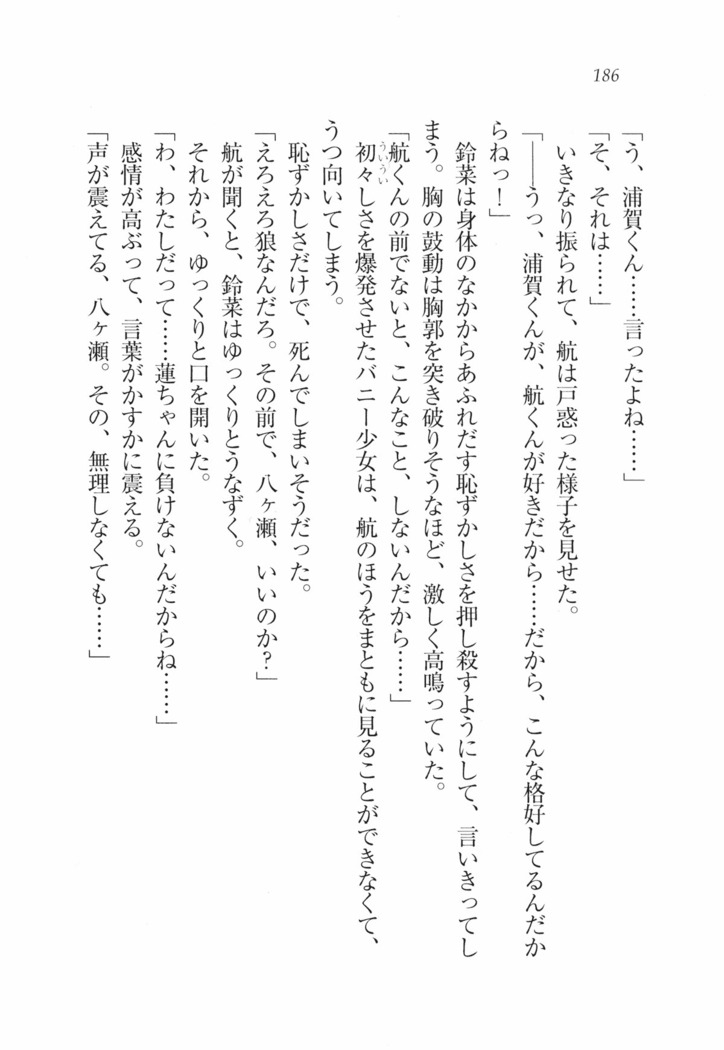 186
「う、浦賀くん……言ったよね……」
「そ、それは……」
いきなり振られて、航は戸惑った様子を見せた。
「――うっ、浦賀くんが、航くんが好きだから……だから、こんな格好してるんだか
らねっ！」
鈴菜は身体のなかからあふれだす恥ずかしさを押し殺すようにして、言いきってし
まう。胸の鼓動は胸郭を突き破りそうなほど、激しく高鳴っていた。
「航くんの前でないと、こんなこと、しないんだから……」
初々しさを爆発させたバニー少女は、航のほうをまともに見ることができなくて、
ういうい
うつ向いてしまう。
恥ずかしさだけで、死んでしまいそうだった。
「えろえろ狼なんだろ。その前で、八ヶ瀬、いいのか？」
航が聞くと、鈴菜はゆっくりとうなずく。
それから、ゆっくりと口を開いた。
「わ、わたしだって……蓮ちゃんに負けないんだからね……」
感情が高ぶって、言葉がかすかに震える。
「声が震えてる、八ヶ瀬。その、無理しなくても……」